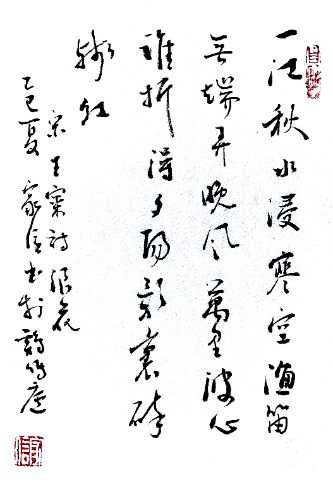 一江秋水浸寒空漁笛
无端弄晚风萬里波心
誰折得夕陽影裏碎
殘红
宋王寀詩浪花
乙巳夏家信书於